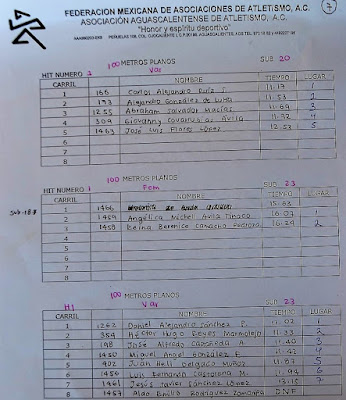 FEDERACION MEXICANA DE ASOCIACIONES DE ATLETISMO, A.C.
ASOCIACIÓN AGUASCALENTENSE DE ATLETISMO, A.C.
"Honor y espíritu deportivo"
7
100 METROS PLANOS SUB 20
HIT NUMERO 1 Var
CARRIL NOMBRE TIEMPO LUGAR
1 166 Carlos Alejandro Ruiz J. 11.17 1
2 193 Alejandro González de Luna 11.53 2
3 1255 Abraham Salvador Macias 11.69 3
4 309 Giovanny Covarrubias Avila 11.92 4
5 1463 José Luis Flores López 12.53 5
6
7
8
100 METROS PLANOS SUB 23
HIT NUMERO 1 Fem
CARRIL NOMBRE TIEMPO LUGAR
1 1466
2 1469 Angélica Michel Avila Tinoco 16.07 1
3 1458 Reina Berenice Camacho 16.29 2
4
5
6
7
8
100 METROS PLANOS SUB 23
H1 Var
CARRIL NOMBRE TIEMPO LUGAR
1 1262 Daniel Alejandro Sánchez P. 11.02 1
2 354 Héctor Hugo Reyes Marmolejo 11.33 2
3 198 José Alfredo Castañeda A. 11.40 3
4 1450 Miguel Angel González E. 4
5 902 Juan Heli Delgado Muñoz 11.87 5
6 1456 Luis Fernando Castañeda M. 11.94 6
7 1461 Jesús Javier Sánchez López 13.15 7
8 1457 Aldo Emilio Rodríguez DNF